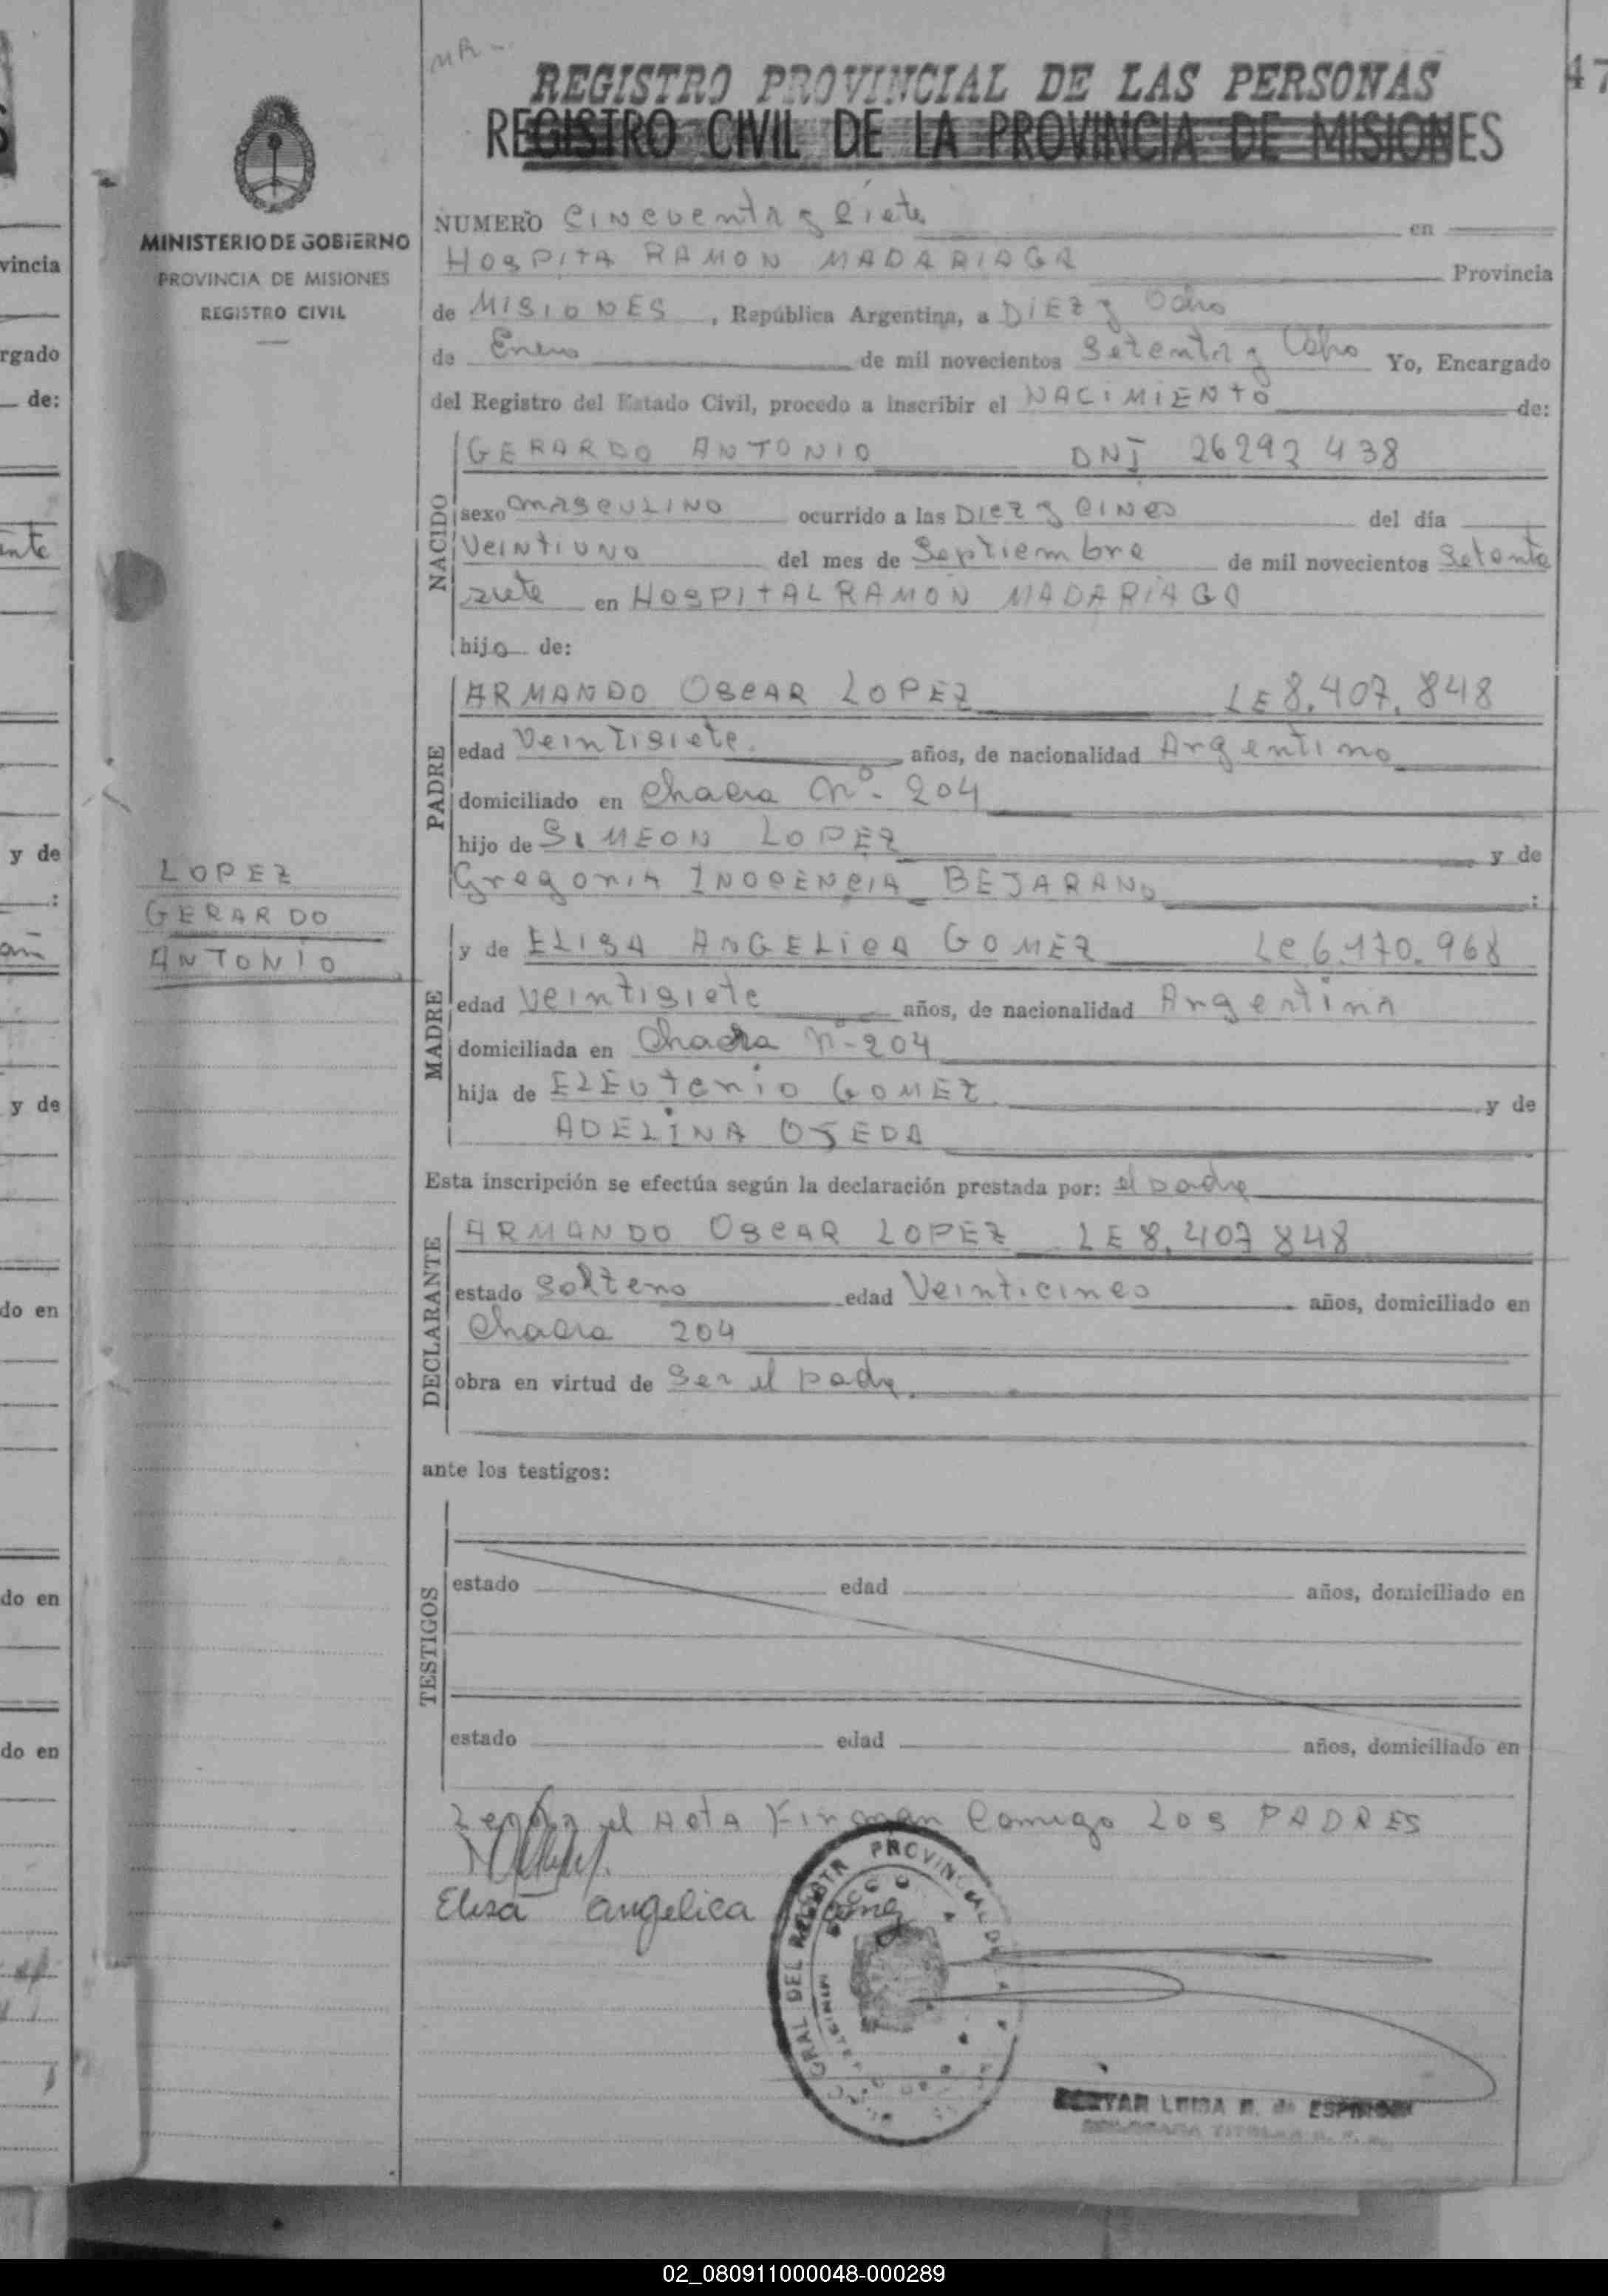 MR-
47
REGISTRO PROVINCIAL DE LAS PERSONAS
REGISTRO CIVIL DE LA PROVINCIA DE MISIONES
MINISTERIO DE GOBIERNO
PROVINCIA DE MISIONES
REGISTRO CIVIL
NUMERO Cincuenta y Siete en
HOSPITA RAMON MADARIAGA Provincia
de MISIONES, República Argentina, a DIEZ y Ocho
de Enero de mil novecientos Setenta y Ocho Yo, Encargado
del Registro del Estado Civil, procedo a inscribir el NACIMIENTO de:
NACIDO
GERARDO ANTONIO DNI 26292438
sexo masculino ocurrido a las DIEZ y CINCO del día
Veintiuno del mes de Septiembre de mil novecientos Setenta
siete en HOSPITAL RAMON MADARIAGA
hijo de:
PADRE
ARMANDO OSCAR LOPEZ LE 8.407.848
edad Veintisiete años, de nacionalidad Argentino
domiciliado en Chacra Nº-204
hijo de SIMEON LOPEZ y de
Gregoria INOCENCIA BEJARANO :
LOPEZ
GERARDO
ANTONIO
MADRE
y de ELISA ANGELICA GOMEZ LC 6.170.968
edad Veintisiete años, de nacionalidad Argentina
domiciliada en Chacra Nº-204
hija de Eleuterio GOMEZ y de
ADELINA OJEDA
Esta inscripción se efectúa según la declaración prestada por: el padre
DECLARANTE
ARMANDO OSCAR LOPEZ LE 8.407848
estado Soltero edad Veinticinco años, domiciliado en
Chacra 204
obra en virtud de Ser el padre.
ante los testigos:
TESTIGOS
estado edad años, domiciliado en
estado edad años, domiciliado en
el Acta Firman Comigo LOS PADRES
Elisa angelica
GRAL DEL REGISTR PROVINCIAL DE
LUISA de
vincia
rgado
de:
y de
:
y de
do en
do en
do en
02_080911000048-000289